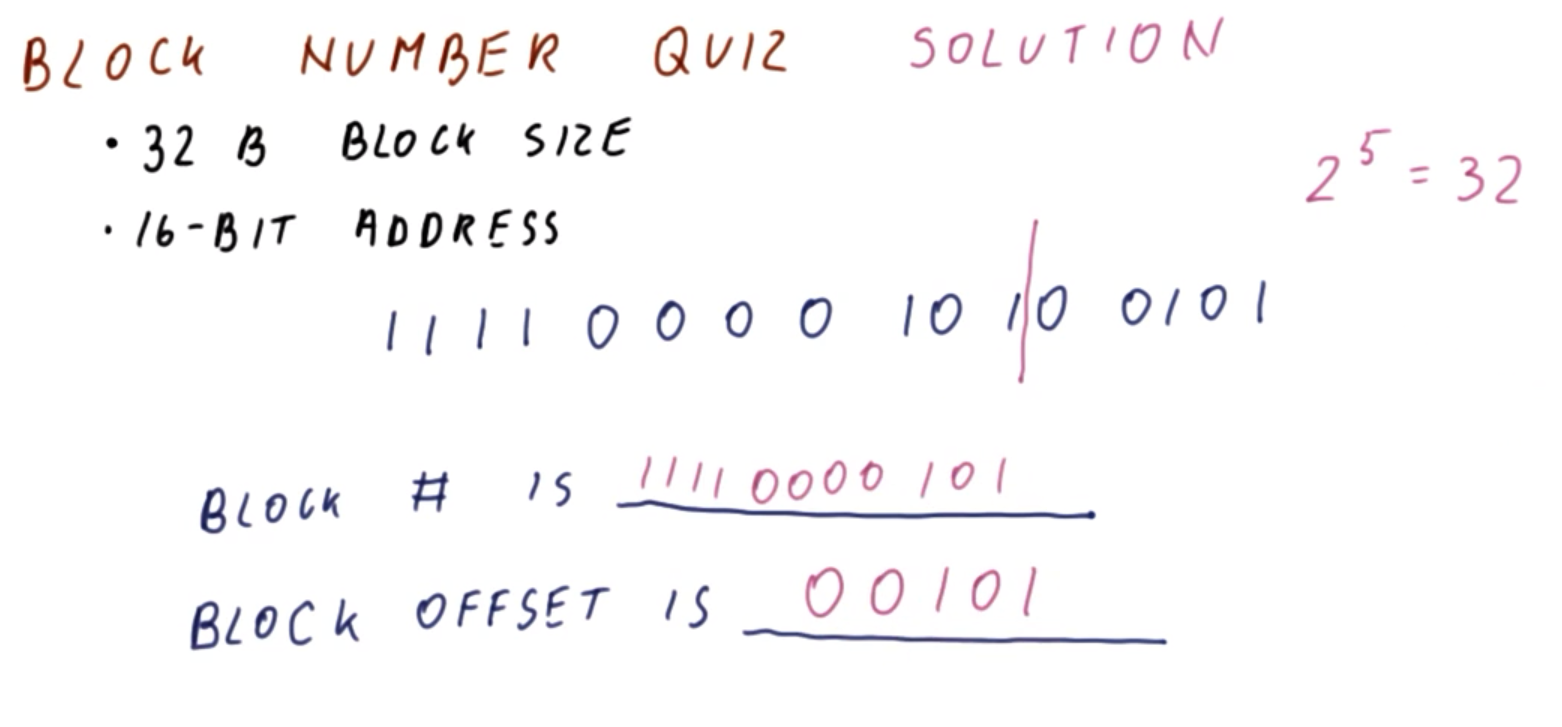 BLOCK NUMBER QUIZ SOLUTION
• 32 B BLOCK SIZE
2^5 = 32
• 16-BIT ADDRESS
1111 0000 101|0 0101
BLOCK # IS 11110000101
BLOCK OFFSET IS 00101